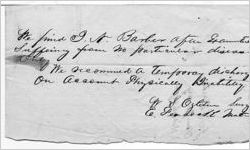 We find J. N. Barber after Examin
Suffering from No particular diseas
We recommend a Temporary discharg
On Account Physically Disability
Surg